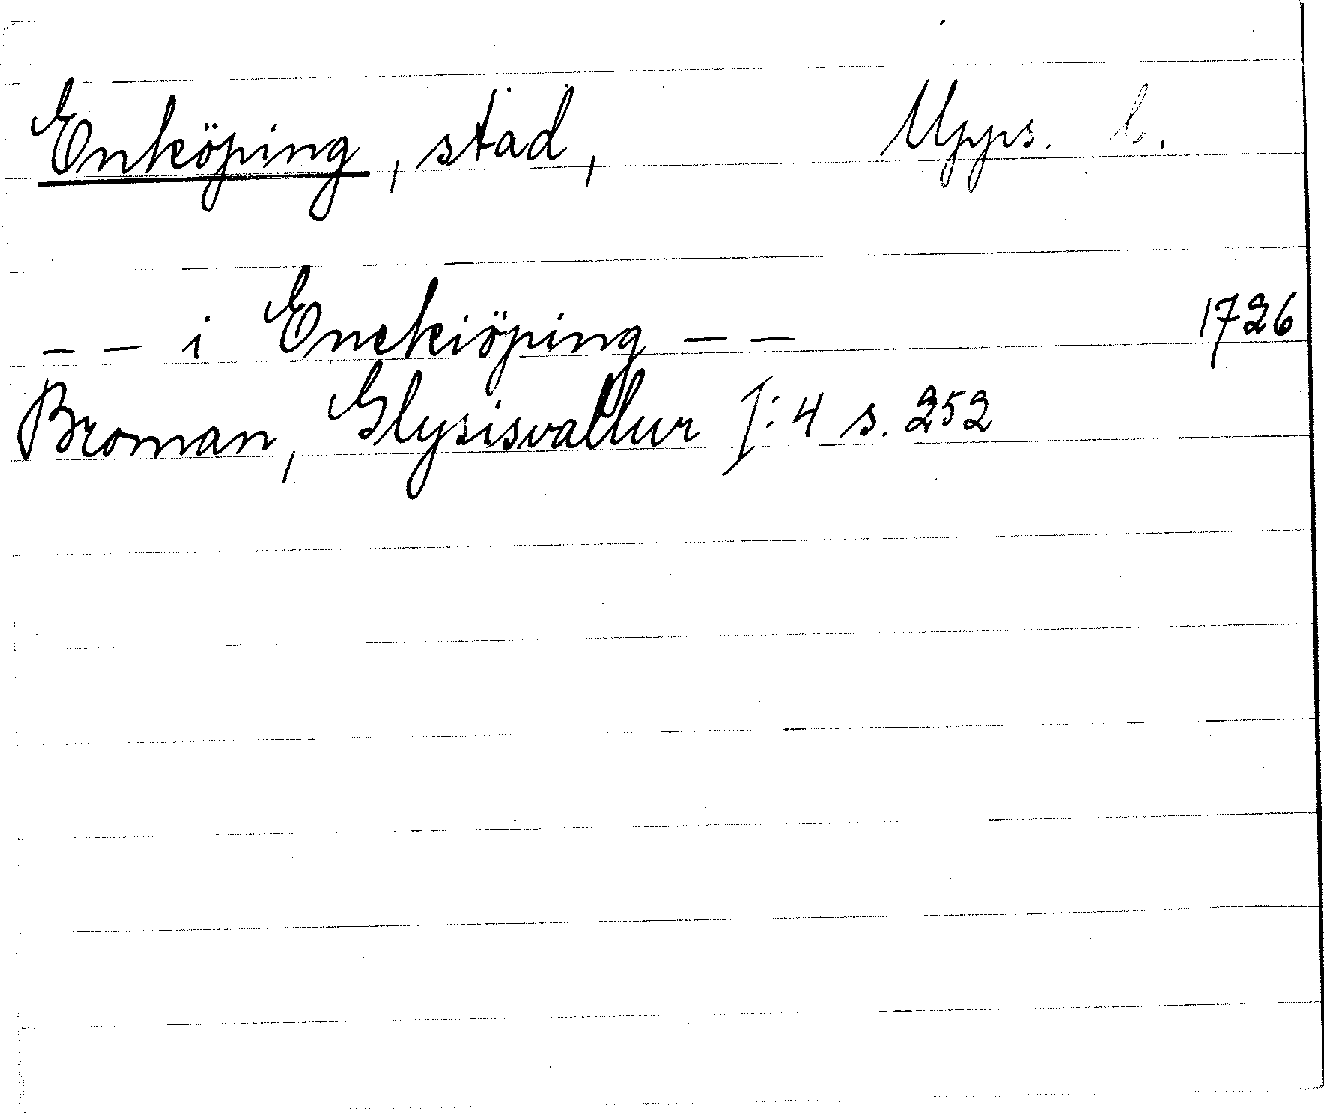 Enköping, stad, Upps. l.
-- i Enekiöping -- 1726
Broman, Glysisvallur I:4 s. 252